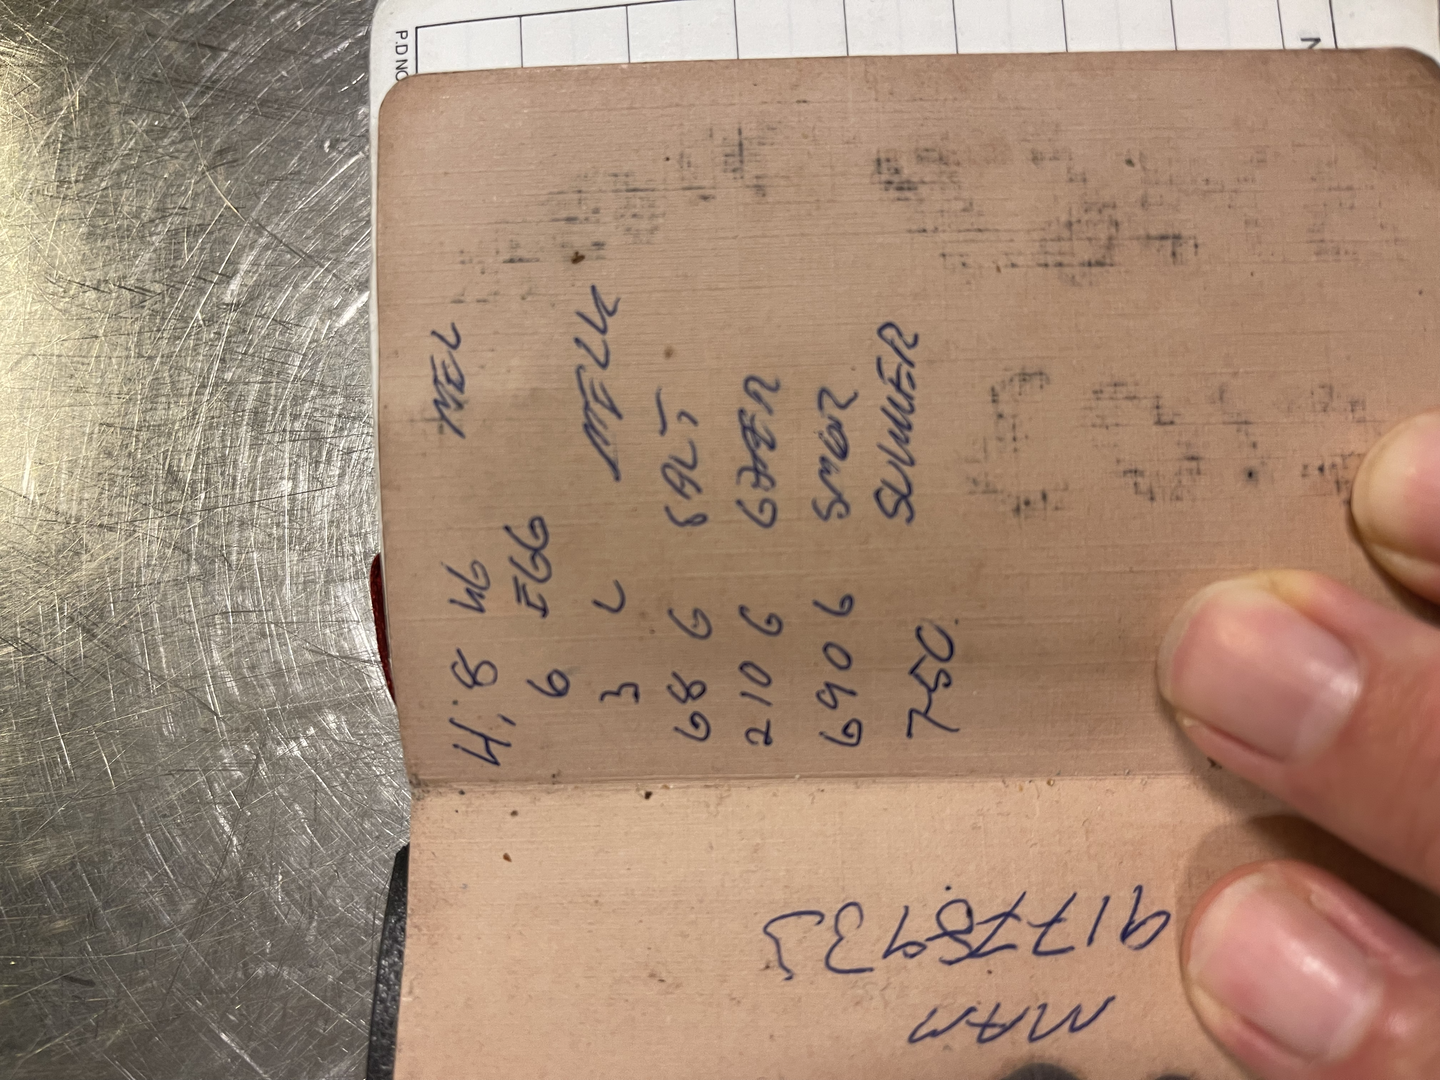 4,8 KG MEL
6 EGG
3 L MELK
68 G SALT
210 G GJÆR
690 G SMØR
750 SUKKER
MAM
P.D NO